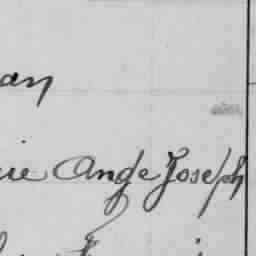 an
ie Ange Joseph